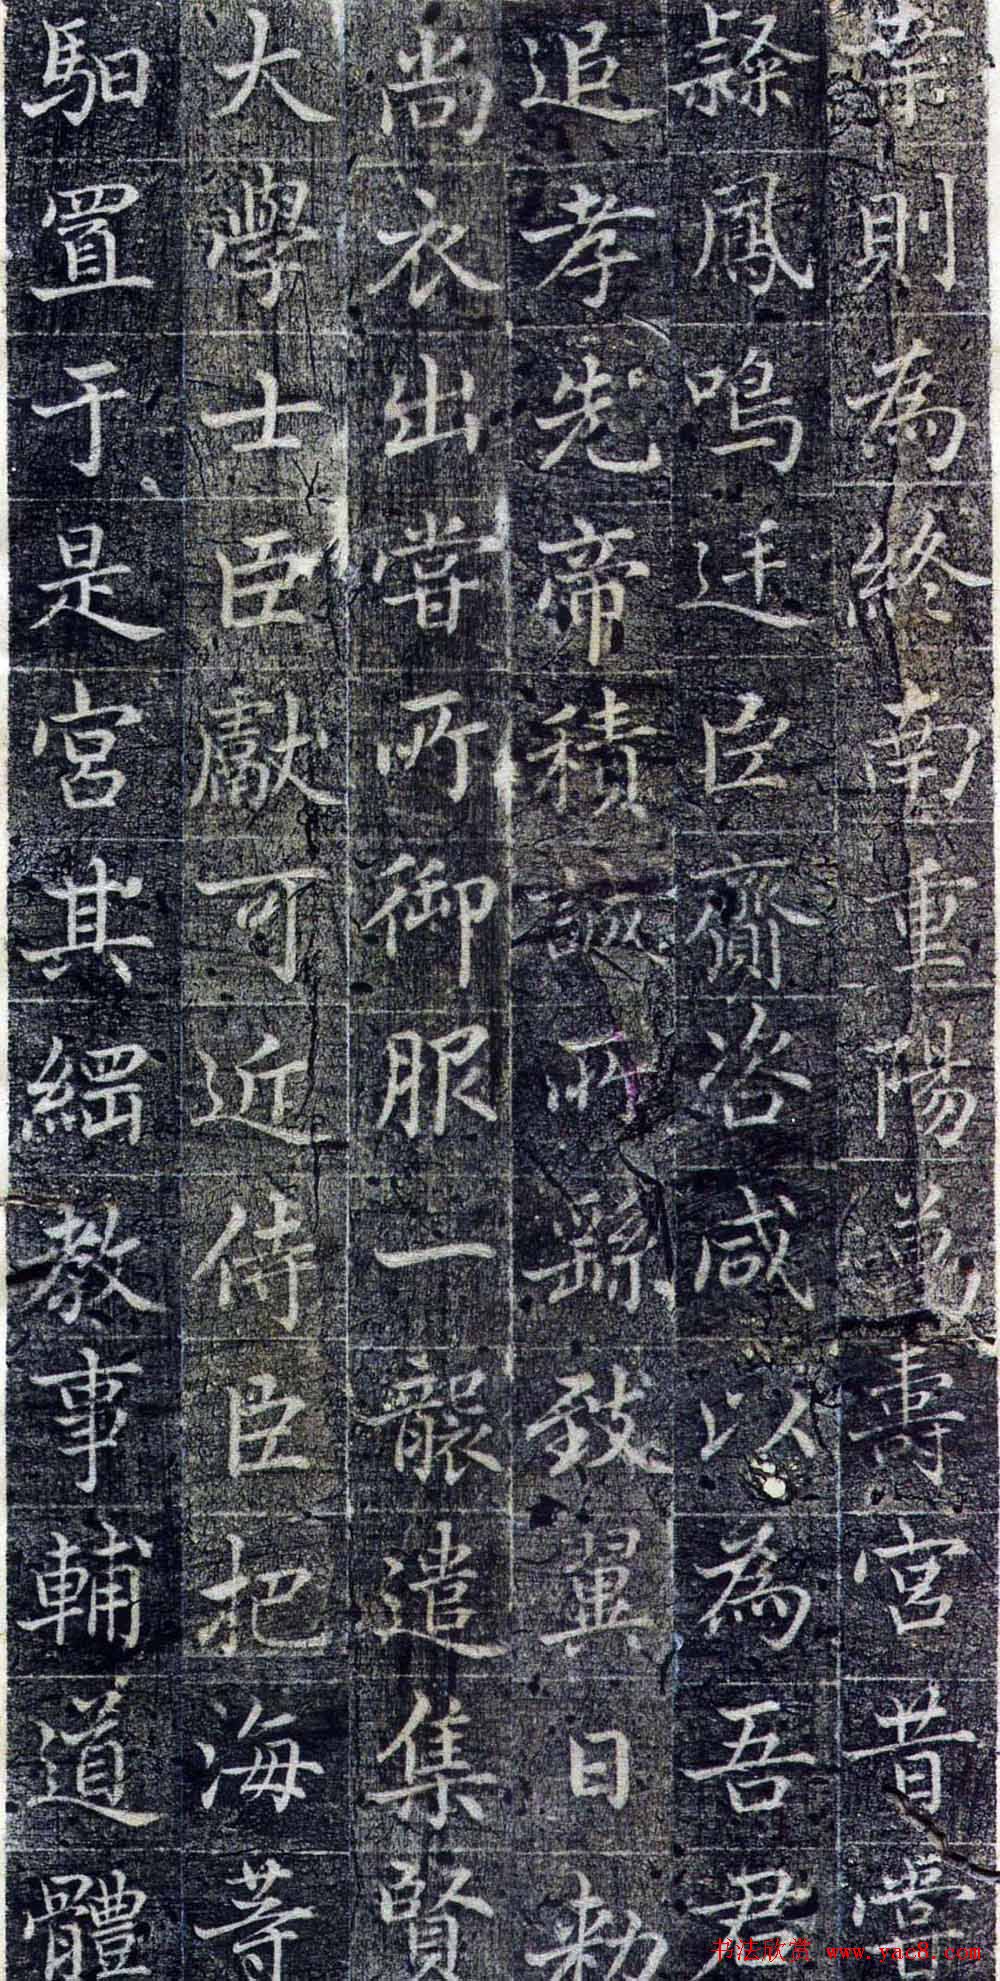 則為終南重陽萬壽宮昔嘗
鳳鳴廷臣齎咨咸以為吾君
追孝先帝積誠所繇致翼日敕
尚衣出嘗所御服一襲遣集賢
大學士臣獻可近侍臣把海等
馹置于是宮其綱教事輔道體
书法欣赏 www.yac8.com